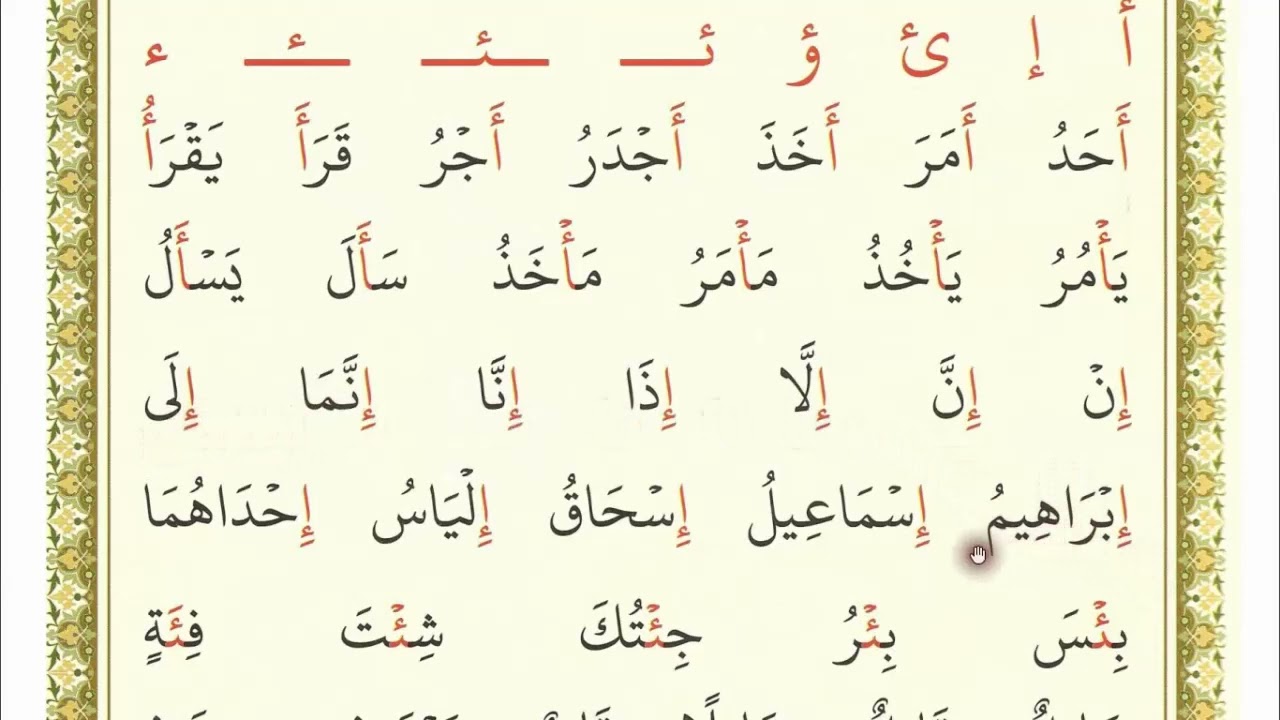 أ إ ئ ؤ ئـــ ـــئـــ ـــئـــ ء
أَحَدُ أَمَرَ أَخَذَ أَجْدَرُ أَجْرُ قَرَأَ يَقْرَأُ
يَأْمُرُ يَأْخُذُ مَأْمَرُ مَأْخَذُ سَأَلَ يَسْأَلُ
إِنْ إِنَّ إِلَّا إِذَا إِنَّا إِنَّمَا إِلَى
إِبْرَاهِيمُ إِسْمَاعِيلُ إِسْحَاقُ إِلْيَاسُ إِحْدَاهُمَا
بِئْسَ بِئْرُ جِئْتُكَ شِئْتَ فِئَةٍ